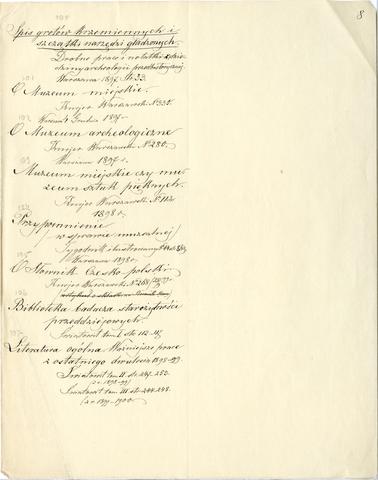 8
100
Spis grotów krzemiennych i
szczątki narzędzi gładzonych.
Drobne prace i notatki z dzie-
dziny archeologii przedhistorycznej
Warszawa 1897. Str. 33.
101
O Muzeum miejskie.
Kurjer Warszawsk. N. 330.
102. Warszawa Grudzień 1897 r.
O Muzeum archeologiczne
Kurjer Warszawsk. N. 280.
103 Warszawa 1897 r.
Muzeum miejskie czy mu-
zeum sztuk pięknych.
Kurjer Warszawsk. N. 112
1898 r.
Przypomnienie
w sprawie muzealnej
Tygodnik illustrowany
105 Warszawa 1898 r.
O Słownik Czesko-polski
Kurjer Warszawski N. 268
106
Biblioteka badacza starożytności
przeddziejowych.
Światowit tom I. str. 112-117
107.
Literatura ogólna Ważniejsze prace
z ostatniego dwulecia 1898-99.
Światowit tom II. str. 247-252.
(z r. 1898-99)
Światowit tom III str. 244-248.
(z r. 1899-1900.